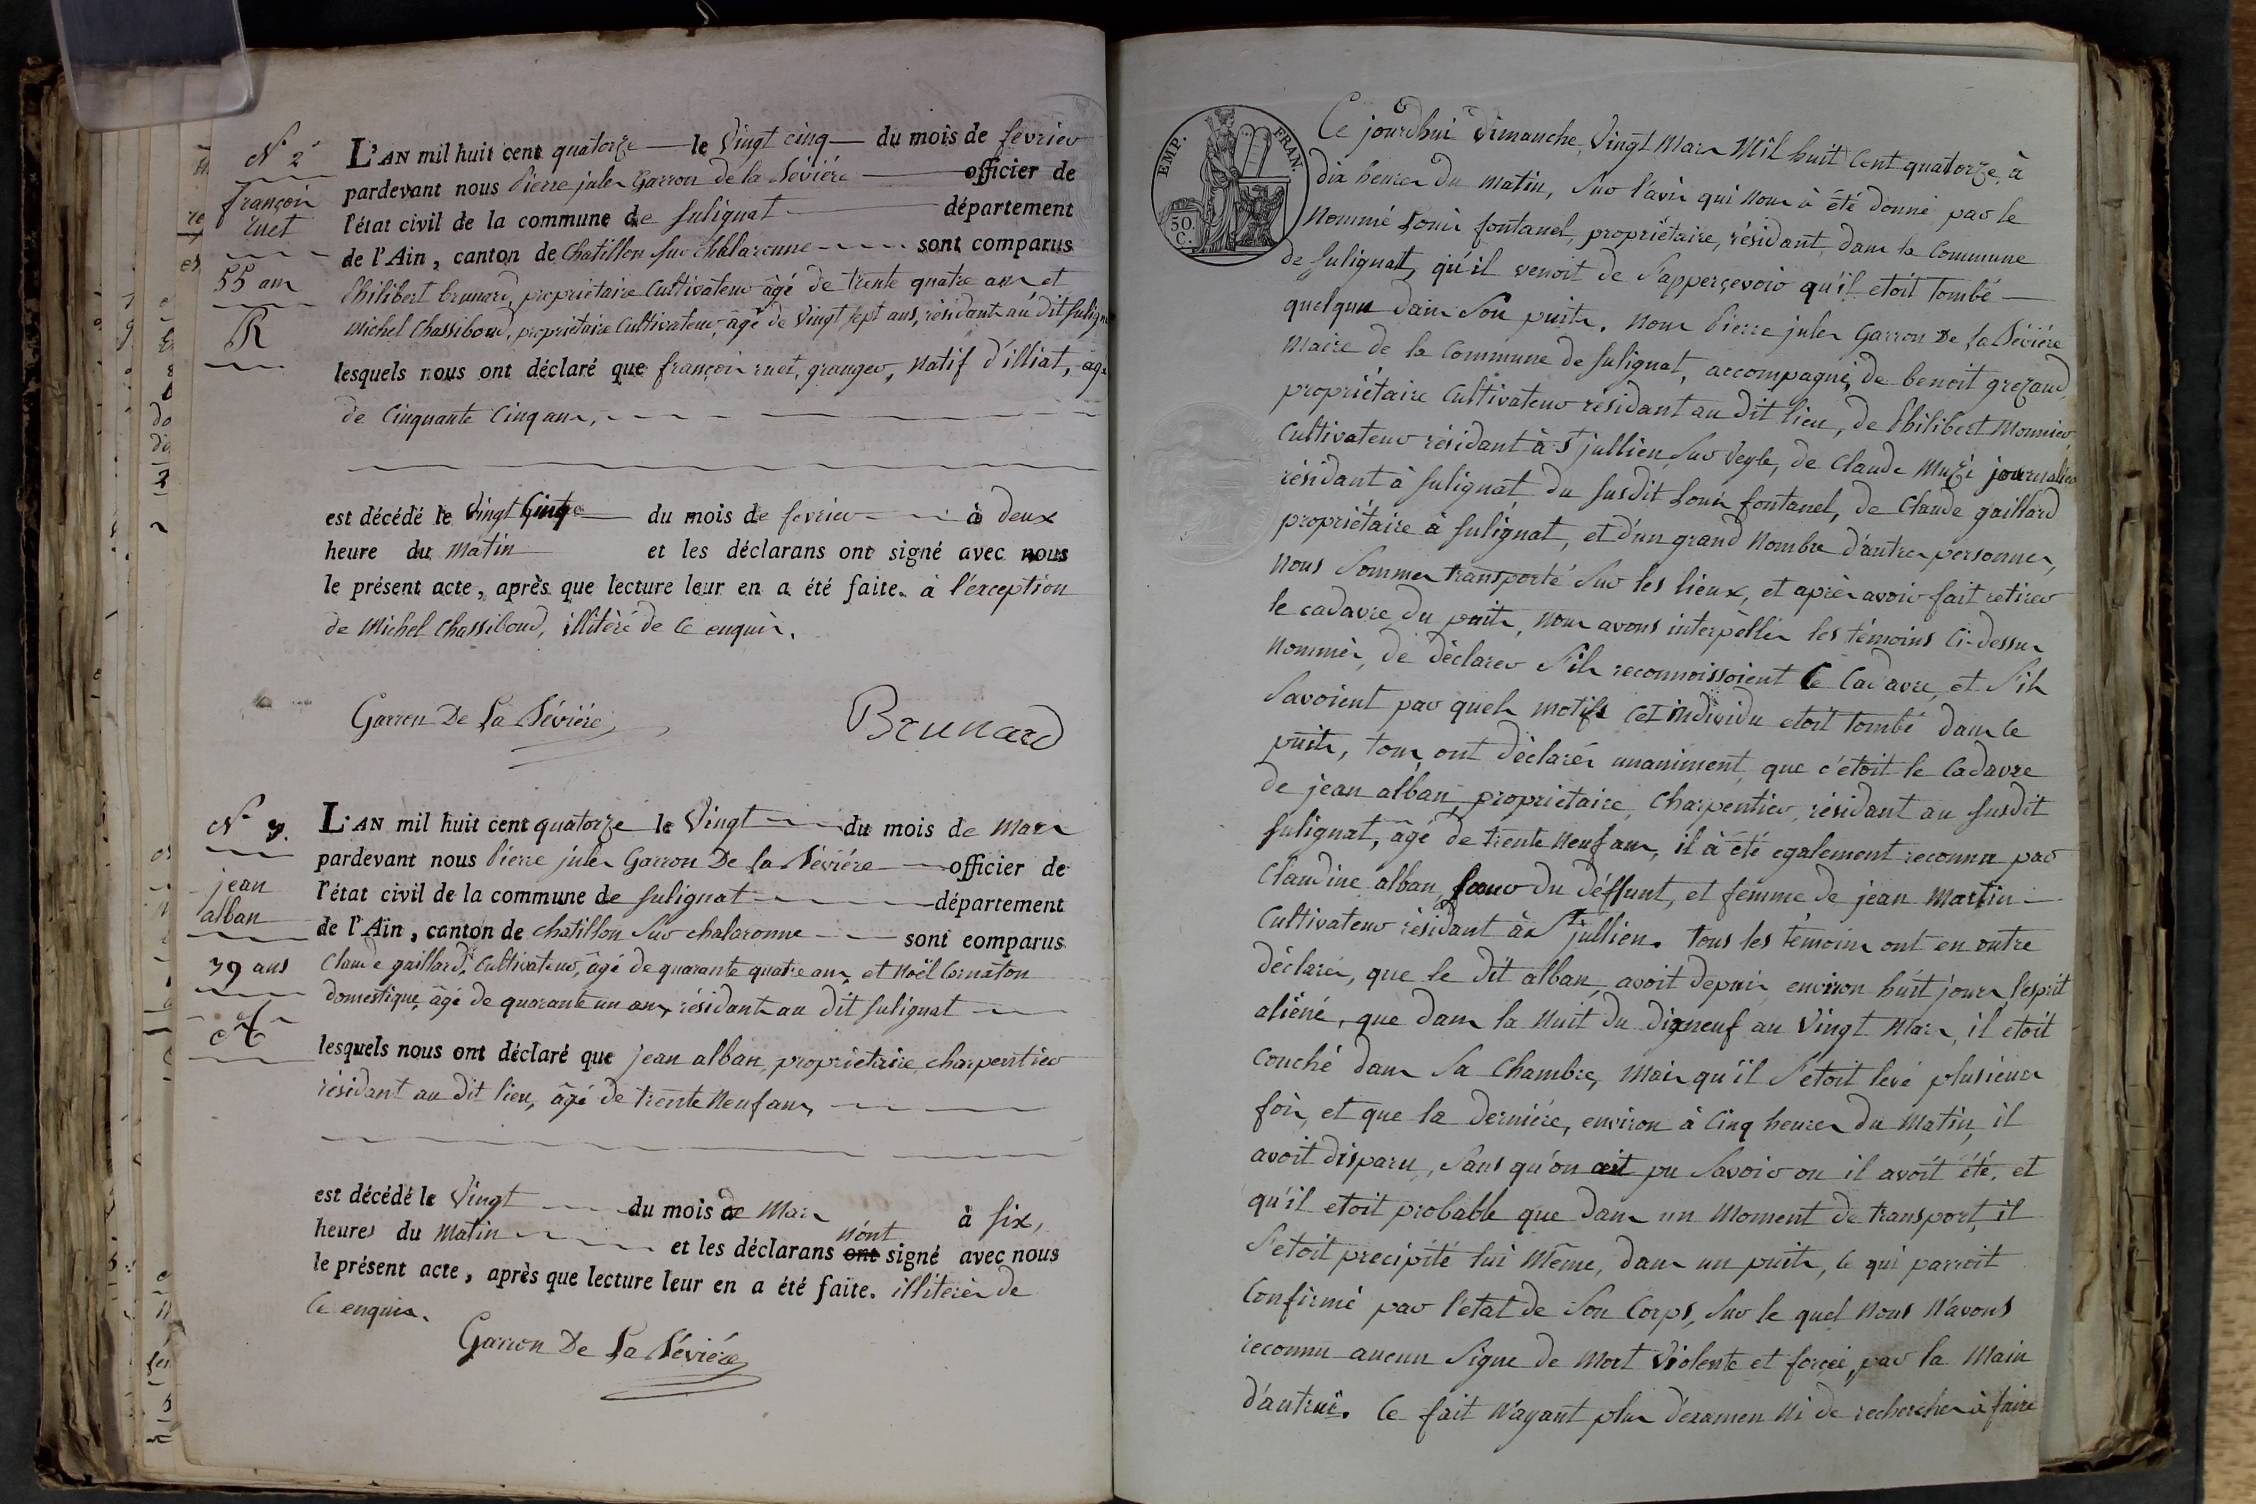 N° 2
françois
ruet
55 ans
R
L'AN mil huit cent quatorze le Vingt cinq du mois de fevrier
pardevant nous Pierre jules Garron de la Bévière officier de
l'état civil de la commune de Sulignat département
de l'Ain, canton de Chatillon sur Chalaronne sont comparus
Philibert brunard, propriétaire Cultivateur âgé de trente quatre ans et
Michel Chassiboud, propriétaire Cultivateur, âgé de Vingt sept ans, résidants au dit Sulign
lesquels nous ont déclaré que françois ruet, granger, Natif d'illiat, agé
de Cinquante Cinq ans,
est décédé le Vingt Cinq du mois de fevrier à deux
heure du Matin et les déclarans ont signé avec nous
le présent acte, après que lecture leur en a été faite. à l'exception
de Michel Chassiboud, illitéré de ce enquis.
Garron De La Bévière Brunard
N° 3.
jean
alban
39 ans
A
L'AN mil huit cent quatorze le Vingt du mois de Mars
pardevant nous Pierre jules Garron De La Bévière officier de
l'état civil de la commune de Sulignat département
de l'Ain, canton de chatillon sur chalaronne sont comparus
Claude gaillard, Cultivateur, âgé de quarante quatre ans, et Noël Cornaton
domestique, âgé de quarante un ans, résidants au dit Sulignat
lesquels nous ont déclaré que jean alban, propriétaire charpentier
résidant au dit lieu, âgé de trente Neuf ans,
est décédé le Vingt du mois de Mars à six,
heures du Matin et les déclarans n'ont ont signé avec nous
le présent acte, après que lecture leur en a été faite. illiterés de
Ce enquis.
Garron De La Bévière
EMP. FRAN.
50.
C.
Ce jourdhui dimanche, Vingt Mars Mil huit Cent quatorze, à
dix heures du matin, sur l'avis qui nous à été donné par le
Nommé Louis fontanel, propriétaire, résidant dans la Commune
de Sulignat, qu'il venoit de s'apperçevoir qu'il etoit tombé
quelqun dans Son puits. Nous Pierre jules Garron De La Bévière
Maire de la Commune de Sulignat, accompagné, de benoit grezaud,
propriétaire Cultivateur résidant au dit lieu, de Philibert Monnier,
Cultivateur résidant à St jullien sur Veyle, de Claude Muzi journalier
résidant à Sulignat du susdit Louis fontanel, de Claude gaillard
propriétaire à Sulignat, et d'un grand Nombre d'autres personnes,
Nous Sommes transporté sur les lieux, et après avoir fait retirer
le cadavre du puits, Nous avons interpellés les témoins Ci-dessus
Nommés, de déclarer s'ils reconnoissoient Ce Cadavre, et s'ils
Savoient par quels motifs cet individu etoit tombé dans ce
puits, tous ont déclarés unaniment que c'étoit le Cadavre
de jean alban, propriétaire, Charpentier, résidant au susdit
Sulignat, âgé de trente Neuf ans, il à été egalement reconnu par
Claudine alban, Sœur du déffunt, et femme de jean Martin
Cultivateur résidant à St jullien. tous les témoins ont en outre
déclarés, que le dit alban, avoit depuis environ huit jours l'esprit
aliéné, que dans la Nuit du dixneuf au Vingt Mars, il étoit
Couché dans Sa Chambre, Mais qu'il s'étoit levé plusieurs
fois, et que la dernière, environ à Cinq heures du Matin, il
avoit disparu, Sans qu'on ait pu Savoir ou il avoit été, et
qu'il etoit probable que dans un Moment de transport, il
S'etoit precipité lui Même, dans un puits, ce qui parroit
Confirmé par l'état de Son Corps, sur le quel Nous N'avons
reconnu aucun Signe de Mort Violente et forcée, par la Main
d'autrui. Ce fait N'ayant plus d'examen Ni de recherches à faire